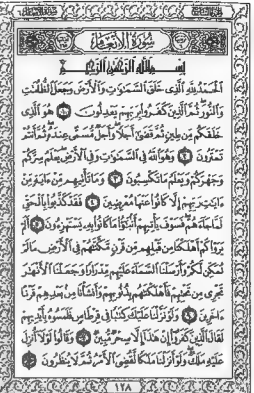 سورة الأنعام
بسم الله الرحمن الرحيم
الحمد لله الذي خلق السموات والأرض وجعل الظلمت
والنور ثم الذين كفروا بربهم يعدلون ۝ هو الذي
خلقكم من طين ثم قضى أجلا وأجل مسمى عنده ثم أنتم
تمترون ۝ وهو الله في السموات وفي الأرض يعلم سركم
وجهركم ويعلم ما تكسبون ۝ وما تأتيهم من ءاية من
ءايت ربهم إلا كانوا عنها معرضين ۝ فقد كذبوا بالحق
لما جاءهم فسوف يأتيهم أنبؤا ما كانوا به يستهزءون ۝ ألم
يروا كم أهلكنا من قبلهم من قرن مكنهم في الأرض ما لم
نمكن لكم وأرسلنا السماء عليهم مدرارا وجعلنا الأنهر
تجري من تحتهم فأهلكنهم بذنوبهم وأنشأنا من بعدهم قرنا
ءاخرين ۝ ولو نزلنا عليك كتبا في قرطاس فلمسوه بأيديهم
لقال الذين كفروا إن هذا إلا سحر مبين ۝ وقالوا لولا أنزل
عليه ملك ولو أنزلنا ملكا لقضي الأمر ثم لا ينظرون ۝
١٢٨